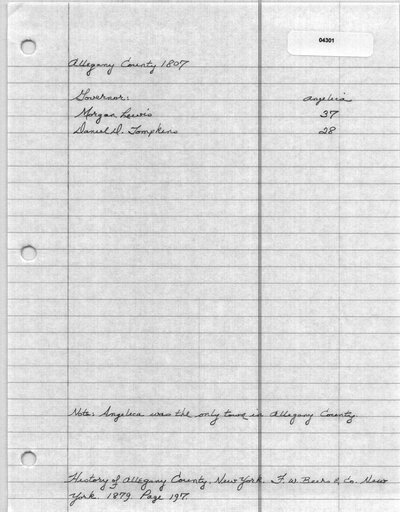 04301
Allegany County 1807
Governor: Angelica
Morgan Lewis 37
Daniel D. Tompkins 28
Note: Angelica was the only town in Allegany County
History of Allegany County, New York. F. W. Beers & Co. New
York. 1879. Page 197.